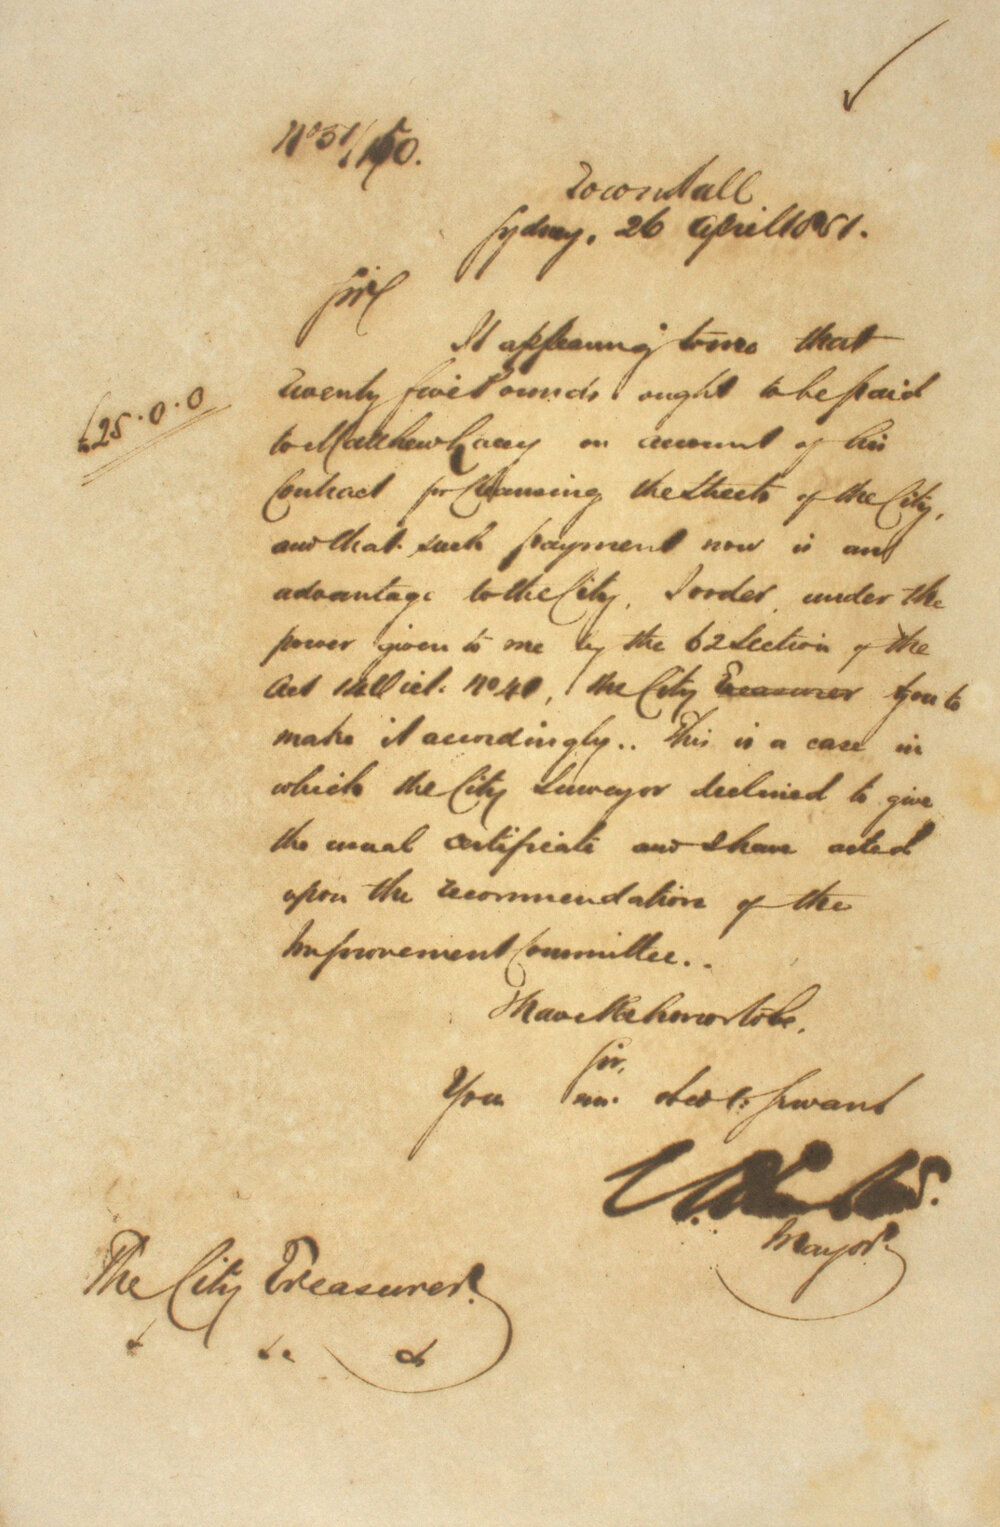 No 51/150.
Townhall
Sydney, 26 April 1851.
Sir
It appearing to me that
Twenty five Pounds ought to be paid
£25.0.0
to Matthew Lacey on account of his
Contract for Cleansing the Streets of the City,
and that such payment now is an
advantage to the City, I order, under the
power given to me by the 62 Section of the
Act 14 Vict. No 41, the City Treasurer you to
make it accordingly.. This is a case in
which the City Surveyor declined to give
the usual certificate and I have acted
upon the recommendation of the
Improvement Committee..
I have the honor to be,
Sir,
Your mo. obed. Servant
Mayor.
The City Treasurer.
& &c &